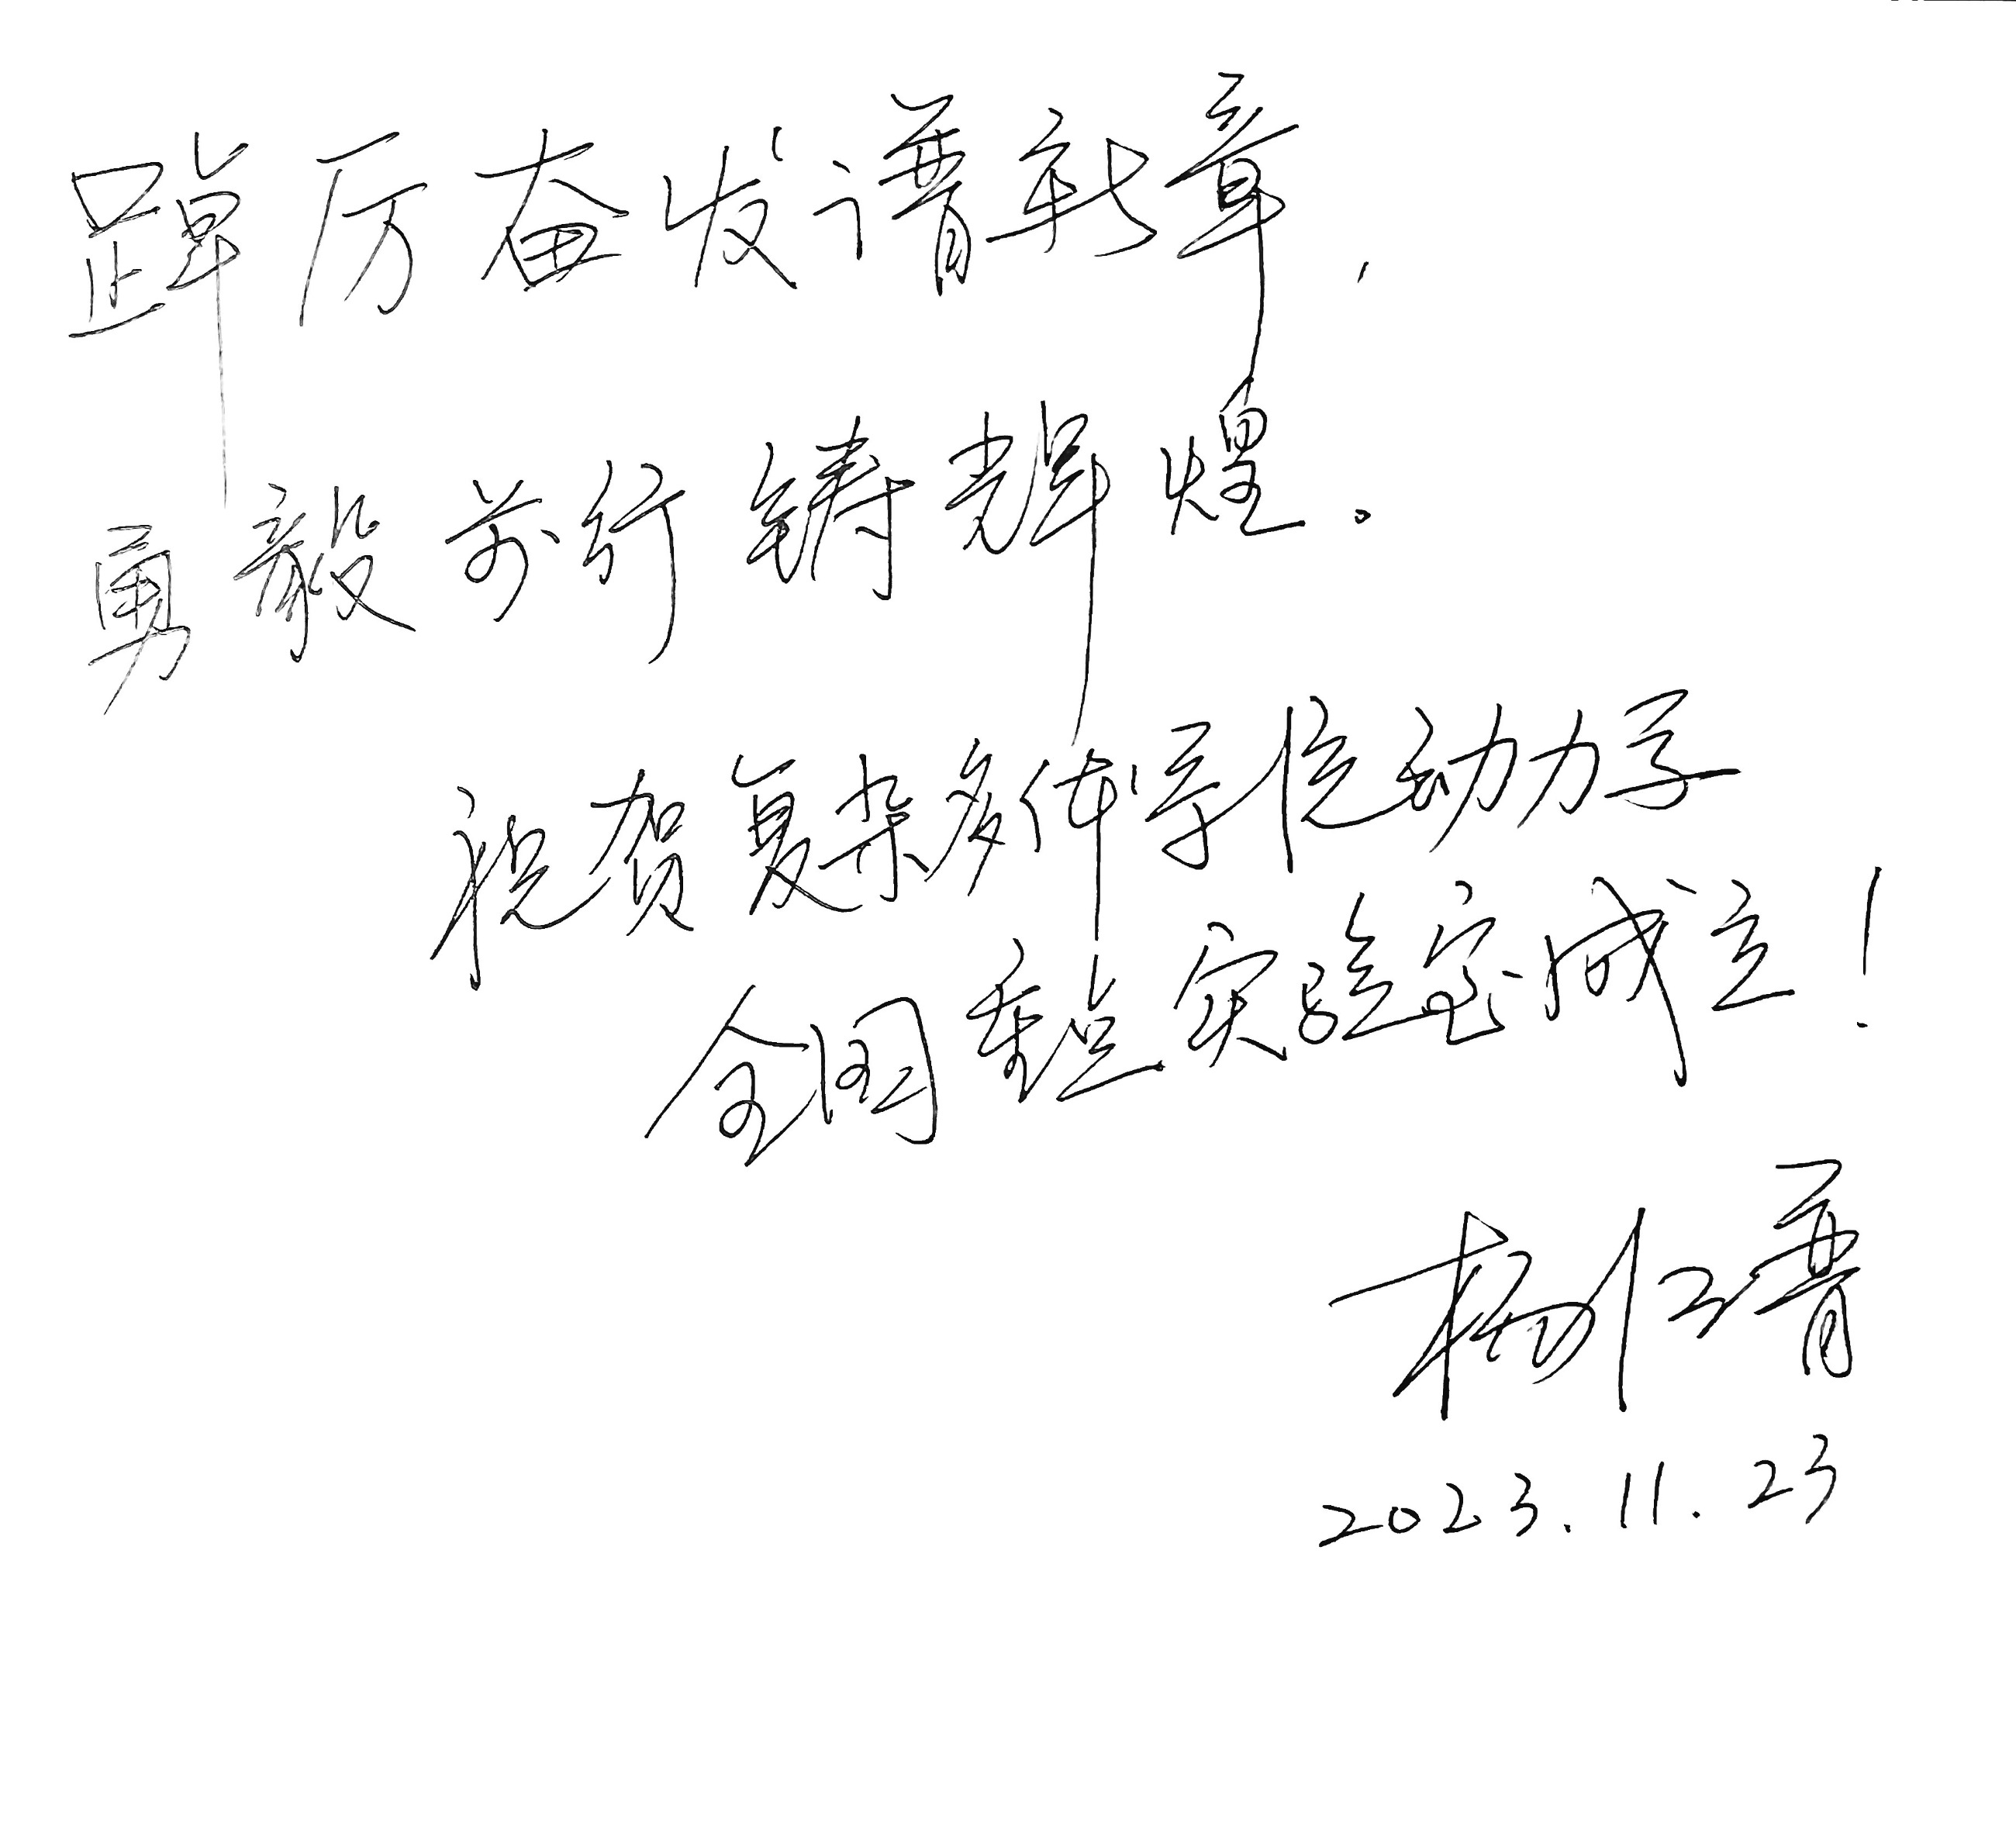 踔厉奋发谱新章,
勇毅前行铸辉煌。
祝贺复杂多体系统动力学
全国重点实验室成立!
杨仁普
2023.11.23